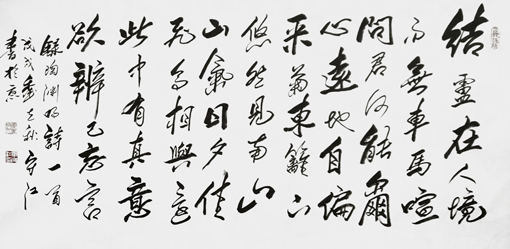 結廬在人境
而無車馬喧
問君何能爾
心遠地自偏
采菊東籬下
悠然見南山
山氣日夕佳
飛鳥相與還
此中有真意
欲辨已忘言
錄陶淵明詩一首
戊戌秋守江
書於京